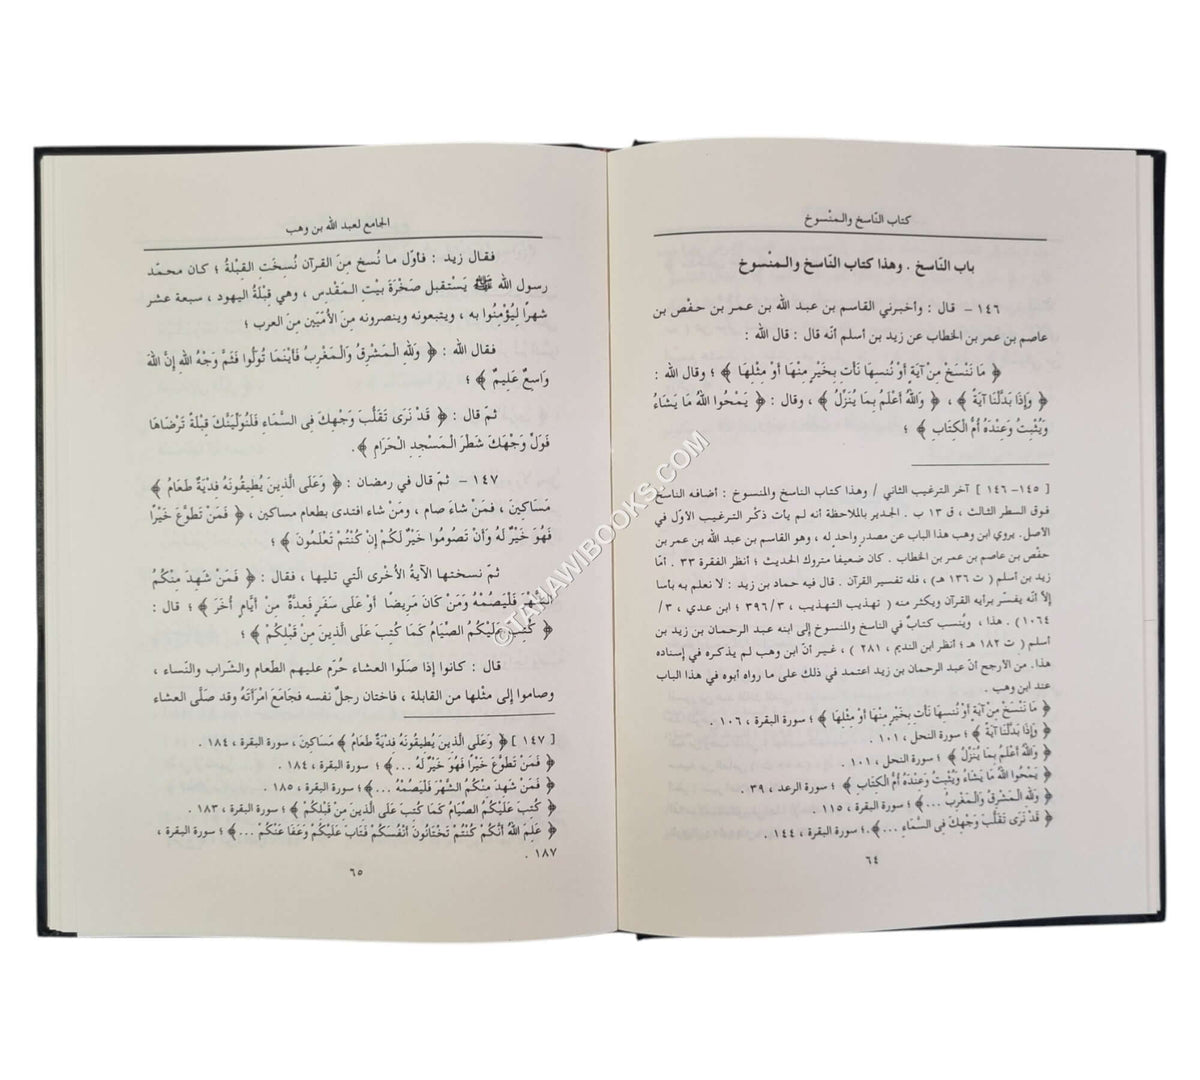 كتاب النّاسخ والـمنْسوخ
باب النّاسخ . وهذا كتاب النّاسخ والـمنْسوخ
١٤٦ – قال : وأخبرني القاسم بن عبد الله بن عمر بن حفْص بن
عاصم بن عمر بن الخطاب عن زيد بن أسلم أنّه قال : قال الله :
﴿ مَا نَنْسَخْ مِنْ آيَةٍ أَوْ نُنسِهَا نَأتِ بِخَيْرٍ مِنْهَا أَوْ مِثْلِهَا ﴾ ؛ وقال الله :
﴿ وَإِذَا بَدَّلْنَا آيَةً ﴾ ، ﴿ وَاللهُ أَعْلَمُ بِمَا يُنَزِّلُ ﴾ ، وقال : ﴿ يَمْحُوا اللهُ مَا يَشَاءُ
وَيُثْبِتُ وَعِنْدَهُ أُمُّ الْكِتَابِ ﴾ ؛
[ ١٤٥– ١٤٦ ] آخر الترغيب الثاني / وهذا كتاب الناسخ والمنسوخ : أضافه الناسخ
فوق السطر الثالث ، ق ١٣ ب . الجدير بالملاحظة أنه لم يأت ذكْر الترغيب الأوّل في
الأصل. يروي ابن وهب هذا الباب عن مصدر واحد له ، وهو القاسم بن عبد الله بن عمر بن
حفْص بن عاصم بن عمر بن الخطاب. كان ضعيفا متروك الحديث ؛ أنظر الفقرة ٣٣ . أمّا
زيد بن أسلم ( ت ١٣٦ هـ) ، فله تفسير القرآن . قال فيه حماد بن زيد : لا نعلم به بأسا
إلاّ أنّه يفسّر برأيه القرآن ويكثر منه ( تهذيب التهذيب ، ٣٩٦/٣ ؛ ابن عدي ، ٣/
١٠٦٤ ) . هذا ، وينسب كتابٌ في الناسخ والمنسوخ إلى ابنه عبد الرحمان بن زيد بن
أسلم ( ت ١٨٢ هـ ؛ أنظر ابن النديم ، ٢٨١ ) ، غير أنّ ابن وهب لم يذكره في إسناده
هذا. من الأرجح أنّ عبد الرحمان بن زيد اعتمد في ذلك على ما رواه أبوه في هذا الباب
عند ابن وهب .
﴿ مَا نَنْسَخْ مِنْ آيَةٍ أَوْ نُنسِهَا نَأتِ بِخَيْرٍ مِنْهَا أَوْ مِثْلِهَا ﴾ ؛ سورة البقرة ، ١٠٦ .
﴿ وَإِذَا بَدَّلْنَا آيَةً ﴾ ؛ سورة النحل ، ١٠١ .
﴿ وَاللهُ أَعْلَمُ بِمَا يُنَزِّلُ ﴾ ؛ سورة النحل ، ١٠١ .
﴿ يَمْحُوا اللهُ مَا يَشَاءُ وَيُثْبِتُ وَعِنْدَهُ أُمُّ الْكِتَابِ ﴾ ؛ سورة الرعد ، ٣٩ .
﴿ وَلله الْـمَشْرِقُ وَالْـمَغْرِبُ ...﴾ ؛ سورة البقرة ، ١١٥ .
﴿ قَدْ نَرَى تَقَلُّبَ وَجْهِكَ فِى السَّمَاءِ ...﴾.؛ سورة البقرة ، ١٤٤ .
٦٤
الجامع لعبد الله بن وهب
فقال زيد : فأوّل ما نُسخ مِنَ القرآن نُسخَت القبْلةُ ؛ كان محمّد
رسول الله ﷺ يَسْتقبل صخْرَة بيْت الـمَقْدس ، وهي قبْلةُ اليهود ، سبعة عشر
شهرًا ليُؤْمنُوا به ، ويتبعونه وينصرونه مِنَ الأمّيّين مِنَ العرب ؛
فقال الله : ﴿ وَلله الْمَشْرِقُ وَالْـمَغْرِبُ فَأَيْنَمَا تُوَلُّوا فَثَمَّ وَجْهُ الله إِنَّ اللهَ
وَاسِعٌ عَلِيمٌ ﴾ ؛
ثمّ قال : ﴿ قَدْ نَرَى تَقَلُّبَ وَجْهِكَ فِى السَّمَاءِ فَلَنُوَلِّيَنَّكَ قِبْلَةً تَرْضَاهَا
فَوَلِّ وَجْهَكَ شَطْرَ الْمَسْجِدِ الْحَرَامِ ﴾ .
١٤٧ – ثمّ قال في رمضان : ﴿ وَعَلَى الَّذِينَ يُطِيقُونَهُ فِدْيَةٌ طَعَامُ ﴾
مَسَاكِين ، فمَنْ شاء صام ، ومَنْ شاء افتدى بطعام مساكين ، ﴿ فَمَنْ تَطَوَّعَ خَيْرًا
فَهُوَ خَيْرٌ لَهُ وَأَنْ تَصُومُوا خَيْرٌ لَكُمْ إِنْ كُنْتُمْ تَعْلَمُونَ ﴾ ؛
ثمّ نسختها الآيةُ الأُخْرى الّتي تليها ، فقال : ﴿ فَمَنْ شَهِدَ مِنْكُمُ
الشَّهْرَ فَلْيَصُمْهُ وَمَنْ كَانَ مَرِيضًا أَوْ عَلَى سَفَرٍ فَعِدَّةٌ مِنْ أَيَّامٍ أُخَرَ ﴾ ؛ قال :
﴿ كُتِبَ عَلَيْكُمُ الصِّيَامُ كَمَا كُتِبَ عَلَى الَّذِينَ مِنْ قَبْلِكُمْ ﴾ ؛
قال : كانوا إذا صَلّوا العشاء حُرّم عليهم الطّعام والشّراب والنّساء ،
وصاموا إلى مثْلها من القابلة ، فاختان رجلٌ نفسه فجامَعَ امْرَأَتَهُ وقد صَلّى العشاء
[ ١٤٧ ] ﴿ وَعَلَى الَّذِينَ يُطِيقُونَهُ فِدْيَةٌ طَعَامُ ﴾ مَسَاكِين ، سورة البقرة ، ١٨٤ .
﴿ فَمَنْ تَطَوَّعَ خَيْرًا فَهُوَ خَيْرٌ لَهُ ...﴾ ؛ سورة البقرة ، ١٨٤ .
﴿ فَمَنْ شَهِدَ مِنْكُمُ الشَّهْرَ فَلْيَصُمْهُ ...﴾ ؛ سورة البقرة ، ١٨٥ .
﴿ كُتِبَ عَلَيْكُمُ الصِّيَامُ كَمَا كُتِبَ عَلَى الَّذِينَ مِنْ قَبْلِكُمْ ﴾ ؛ سورة البقرة ، ١٨٣ .
﴿ عَلِمَ اللهُ أَنَّكُمْ كُنْتُمْ تَخْتَانُونَ أَنْفُسَكُمْ فَتَابَ عَلَيْكُمْ وَعَفَا عَنْكُمْ ...﴾ ؛ سورة البقرة ،
١٨٧ .
٦٥
©TAHAWIBOOKS.COM